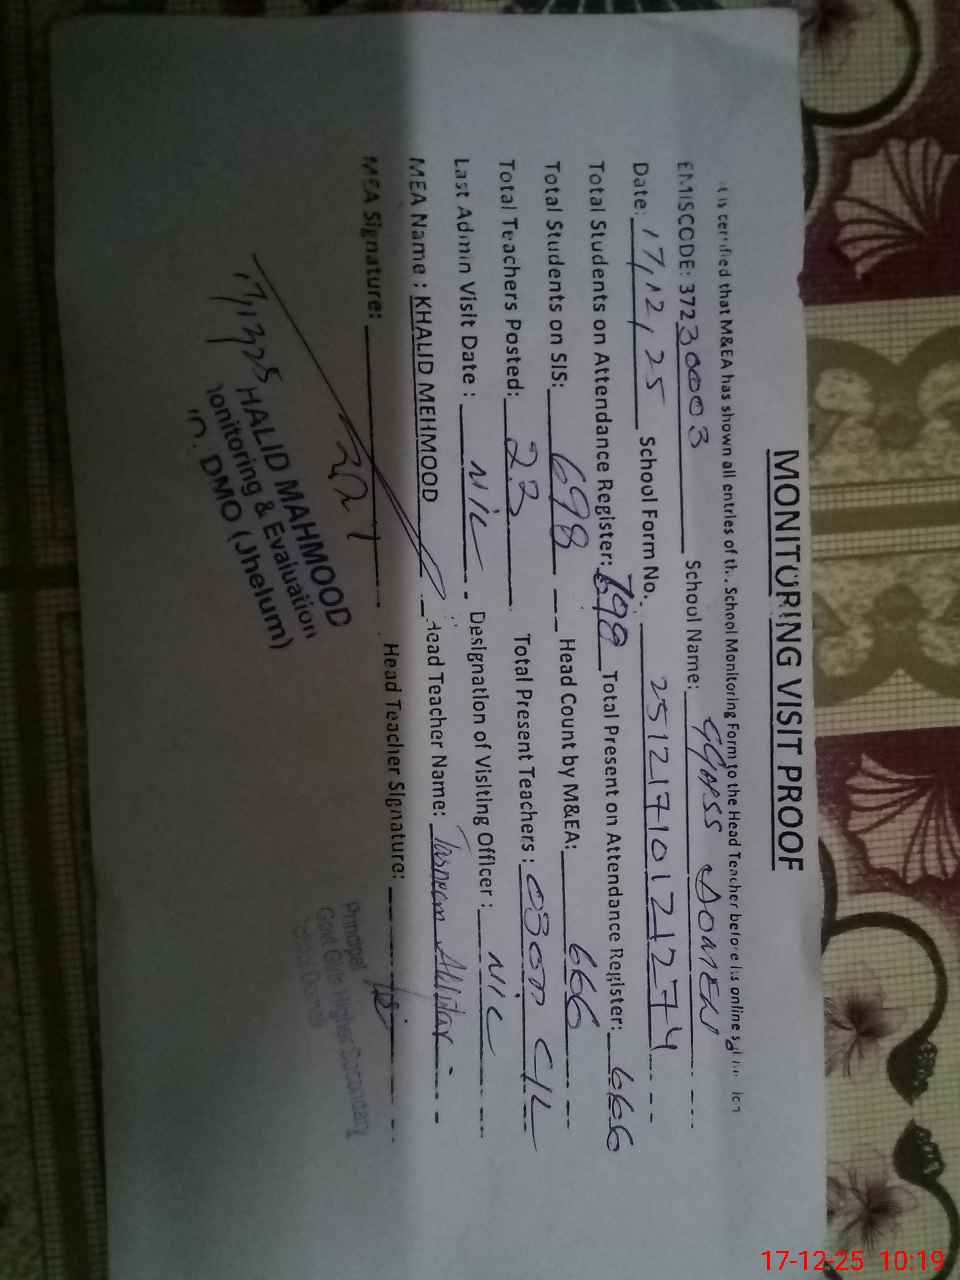 MONITORING VISIT PROOF
It is certified that M&EA has shown all entries of the School Monitoring Form to the Head Teacher before his online
EMISCODE: 37230003 School Name: GGHSS DOMELI
Date: 17,12,25 School Form No. 2512171012127
Total Students on Attendance Register: 698 Total Present on Attendance Register: 666
Total Students on SIS: 698 Head Count by M&EA: 666
Total Teachers Posted: 23 Total Present Teachers: 03on C/L
Last Admin Visit Date: NIL Designation of Visiting Officer: NIL
MEA Name: KHALID MEHMOOD Head Teacher Name: Tasneem Akhtar
MEA Signature: Head Teacher Signature:
HALID MAHMOOD
onitoring & Evaluation
DMO (Jhelum)
Principal
Govt Girls Higher Secondary
17-12-25 10:19